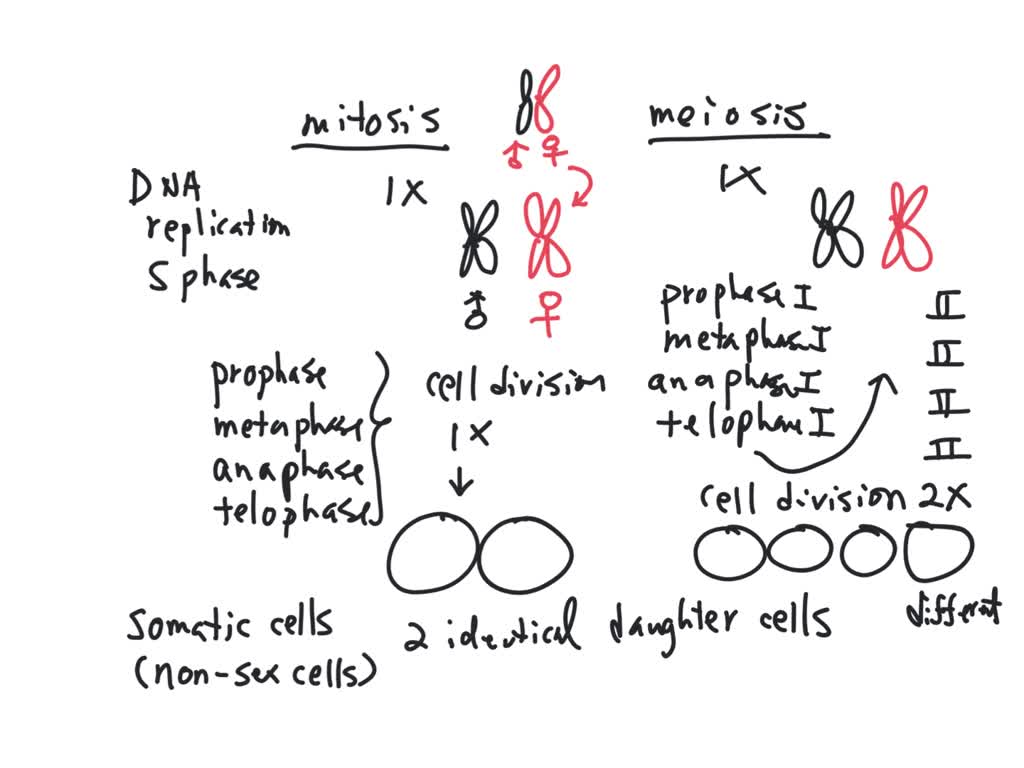 mitosis
♂ ♀
meiosis
DNA
replication
S phase
1X
1X
♂ ♀
prophase
metaphase
anaphase
telophase
cell division
1X
prophase I II
metaphase I II
anaphase I II
telophase I II
cell division 2X
somatic cells
(non-sex cells)
2 identical daughter cells
different